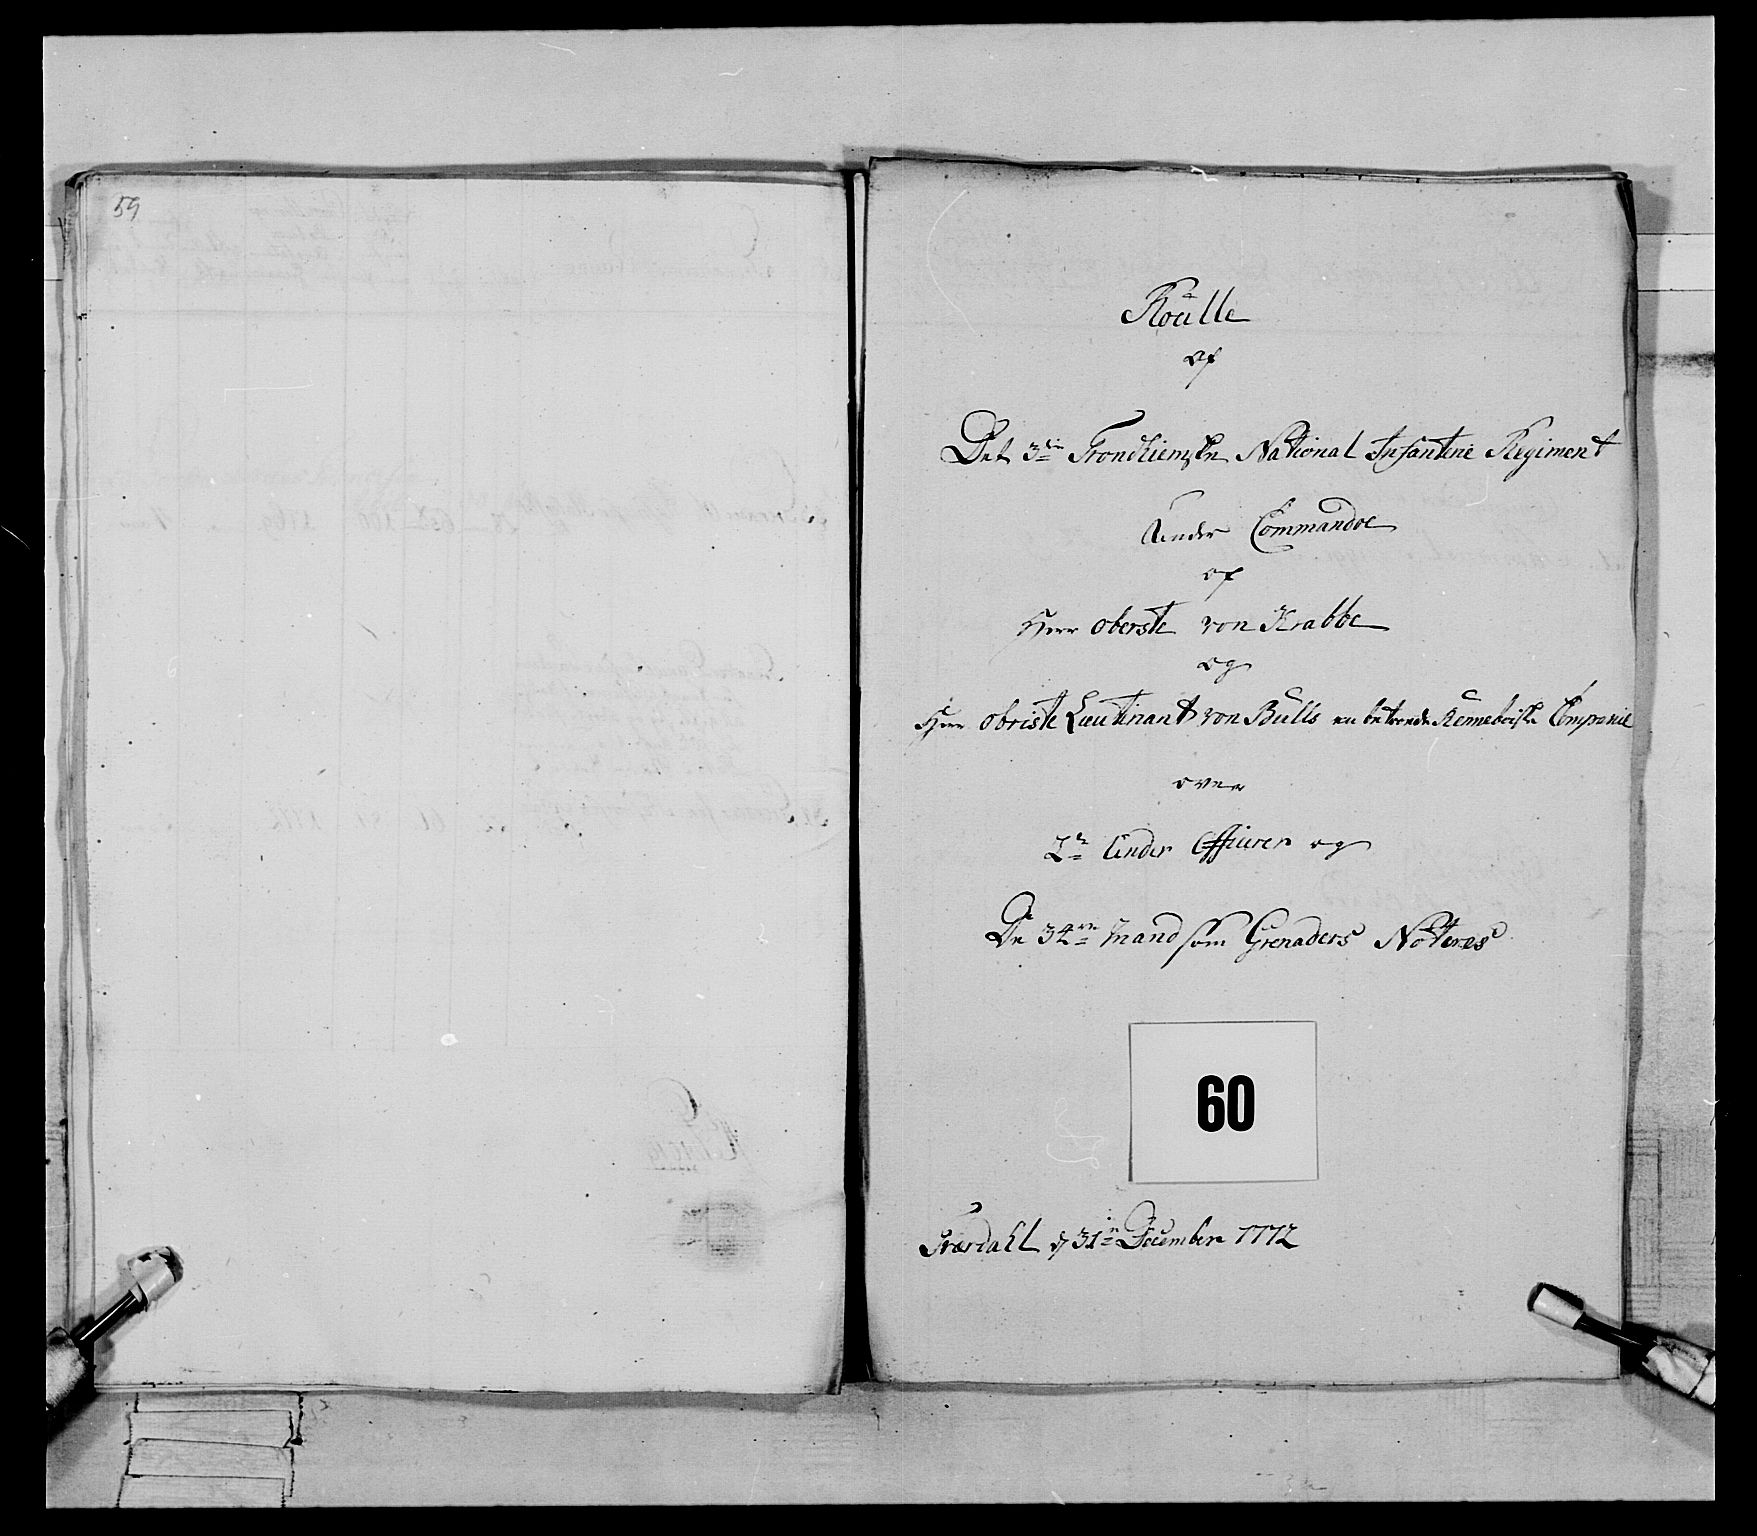 59
Roulle
af
Det 3die Trondhiemske National Infanterie Regiment
Under Commando
af
Herr oberste von Krabbe
og
Herr obriste Lieutinant von Bülls Renneboiske Companie
over
2de Under Officerer og
De 34re Mand som Grenaders Noteres
60
Værdahl d 31te December 1772